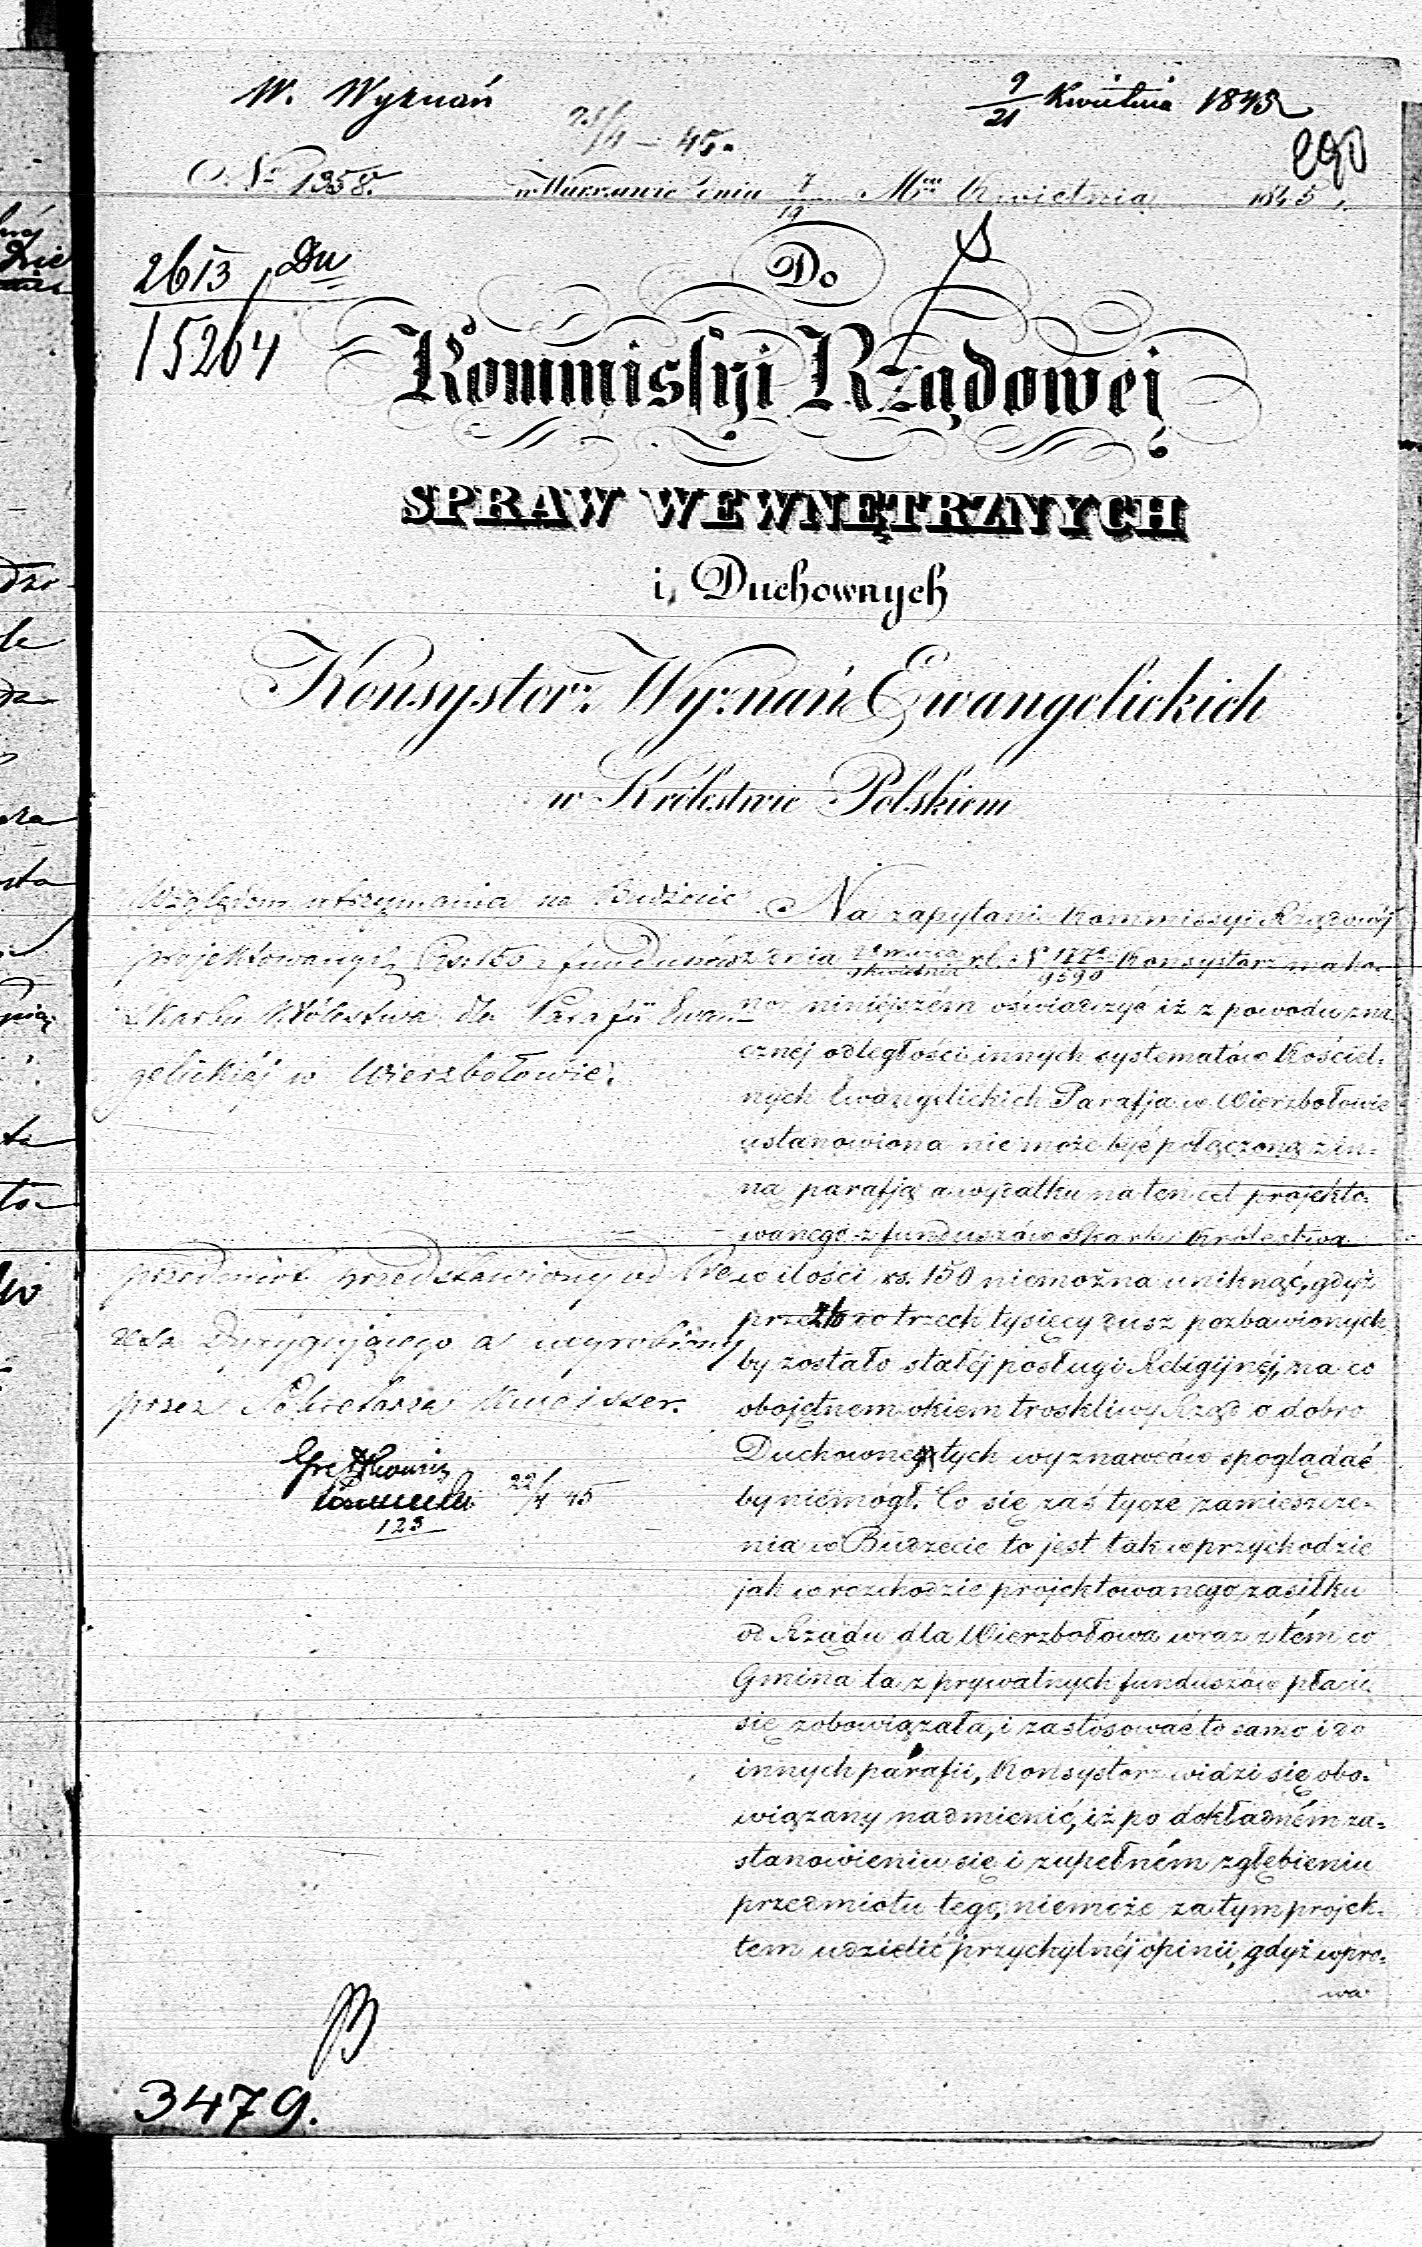 W. Wyznań
9/21 Kwietnia 1845
23/4 – 45.
290
No 1358.
w Warszawie dnia 7/19 Mca Kwietnia 1845 r.
2613 / Du
15264
Do
Kommissyi Rządowej
SPRAW WEWNĘTRZNYCH
i Duchownych
Konsystorz Wyznań Ewangelickich
w Królestwie Polskiem
Względem utrzymania na Budżecie
projektowanych Rs. 150 z funduszów
Skarbu Królestwa dla Parafii Ewan-
gelickiéj w Wierzbołowie.
przedmiot przedstawiony od Pre-
zesa Dyrygującego a wyrobiony
przez Sekretarza
22/4 45
123
Na zapytanie Kommissyi Rządowéj
z dnia 28 marca / 9 kwietnia r.b. No / 9590 Konsystorz ma ho-
nor niniejszém oświadczyć iż z powodu zna-
cznéj odległości innych systematów Kościel-
nych Ewangelickich Parafja w Wierzbołowie
ustanowiona nie może być połączoną z in-
ną parafją a wydatku na ten cel projekto-
wanego z funduszów Skarbu Królestwa
w ilości rs. 150 niemożna uniknąć, gdyż
przeszło trzech tysięcy dusz pozbawionych
by zostało stałéj posługi Religijnéj, na co
obojętnem okiem troskliwy Rząd o dobro
Duchowne tych wyznawców spoglądać
by niemógł. Co się zaś tycze zamieszcze-
nia w Budżecie to jest tak w przychodzie
jak w rozchodzie projektowanego zasiłku
od Rządu dla Wierzbołowa wraz z tém co
Gmina ta z prywatnych funduszów płacić
się zobowiązała, i zastósować to samo i do
innych parafii, Konsystorz widzi się obo-
wiązany nadmienić, iż po dokładném za-
stanowieniu się i zupełném zgłębieniu
przedmiotu tego, niemoże za tym projek-
tem udzielić przychylnéj opinii, gdyż wpro-
wa
3479.